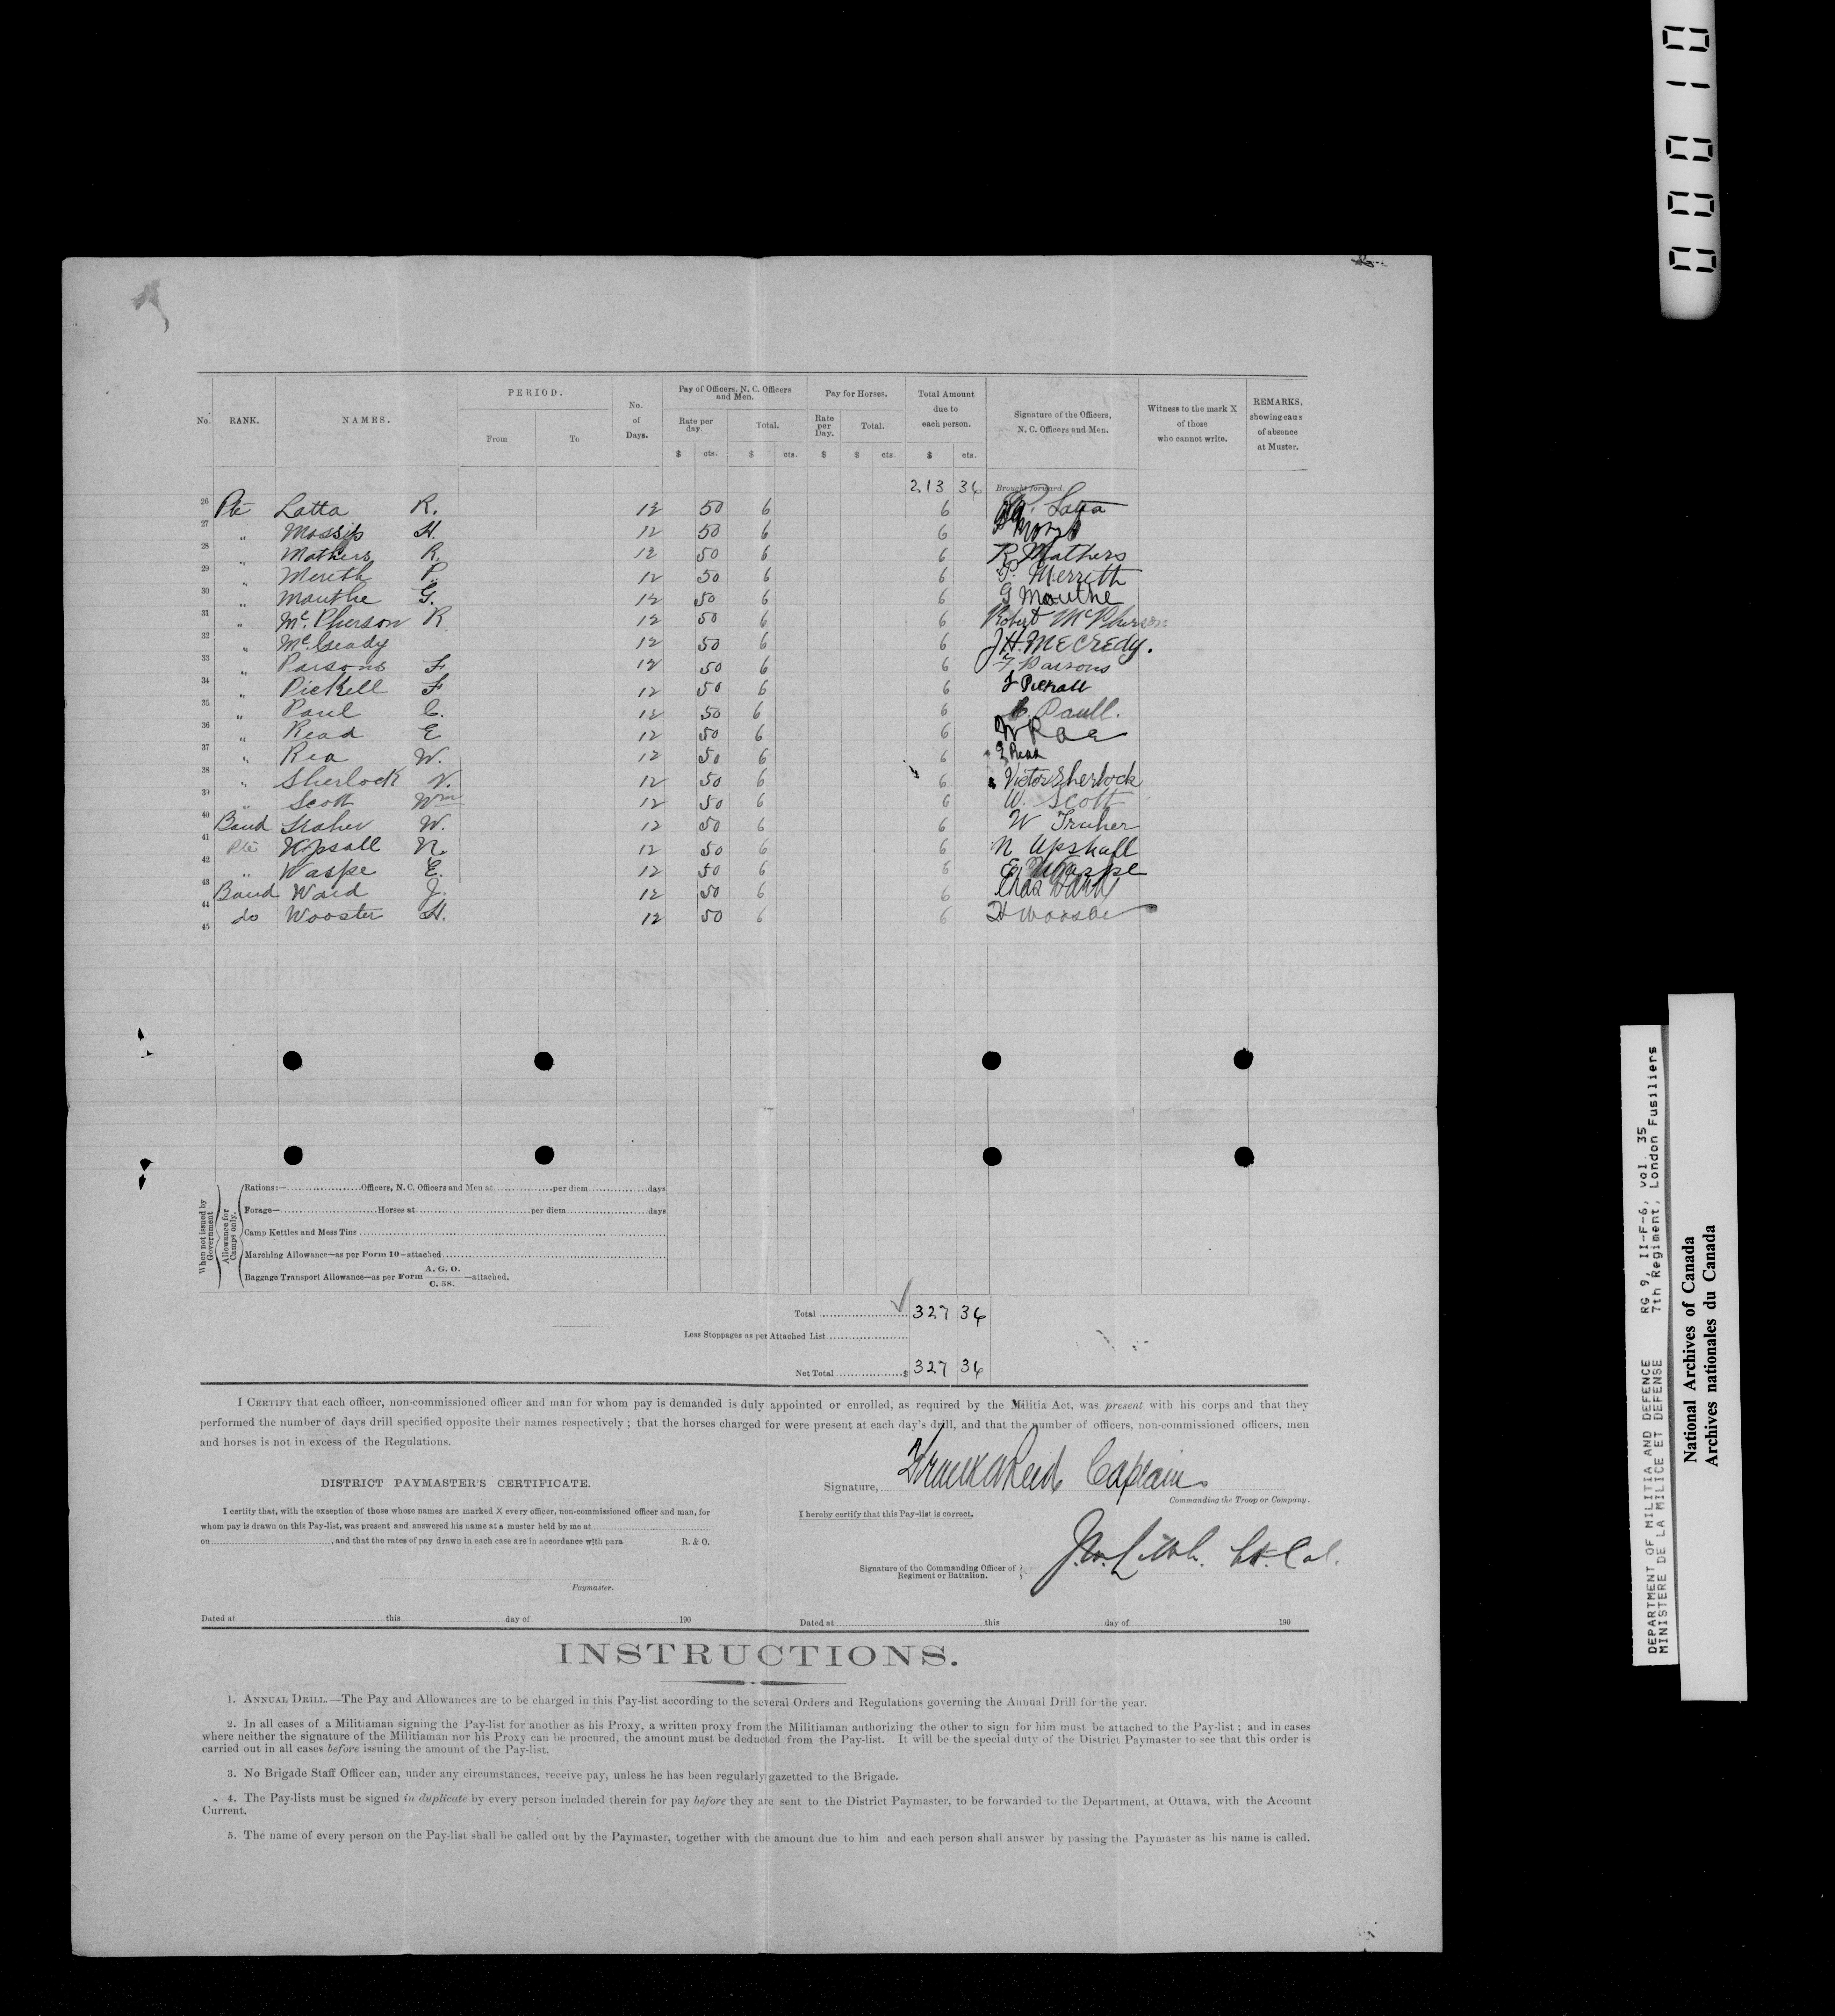 00010
PERIOD.
Pay of Officers, N. C. Officers and Men.
Pay for Horses.
Total Amount due to each person.
No. RANK. NAMES. From To No. of Days. Rate per day Total. Rate per Day. Total. Signature of the Officers, N. C. Officers and Men. Witness to the mark X of those who cannot write. REMARKS. shewing caus of absence at Muster.
$ cts. $ cts. $ $ cts. $ cts.
213 36 Brought forward.
26 Pte Latta R. 12 50 6 6 R. Latta
27 " Mossip H. 12 50 6 6
28 " Mathers R. 12 50 6 6 R Mathers
29 " Merith P. 12 50 6 6 P. Merrith
30 " Mauthe G. 12 50 6 6 G Mauthe
31 " Mc.Pherson R 12 50 6 6 Robert McPherson
32 " Mc.Cready 12 50 6 6 J.H. MCCREDY.
33 " Parsons F 12 50 6 6 F Parsons
34 " Pickell F 12 50 6 6 F Pickall
35 " Paul C. 12 50 6 6 C Paull.
36 " Read E 12 50 6 6 W Rae
37 " Rea W. 12 50 6 6 E Read
38 " Sherlock V. 12 50 6 6 Victor Sherlock
39 " Scott Wm 12 50 6 6 W. Scott
40 Band Traher W. 12 50 6 6 W Traher
41 Pte Upsall N. 12 50 6 6 N Upshall
42 " Waspe E. 12 50 6 6 E Waspe
43 Band Ward J. 12 50 6 6 Chas Ward
44 do Wooster H. 12 50 6 6 H Wooster
45
When not issued by Government
Allowance for Camps only.
Rations:— Officers, N. C. Officers and Men at per diem days
Forage— Horses at per diem days
Camp Kettles and Mess Tins
Marching Allowance—as per Form 10—attached
Baggage Transport Allowance—as per Form A. G. O. C. 58. —attached.
Total 327 36
Less Stoppages as per Attached List
Net Total $ 327 36
I CERTIFY that each officer, non-commissioned officer and man for whom pay is demanded is duly appointed or enrolled, as required by the Militia Act, was present with his corps and that they
performed the number of days drill specified opposite their names respectively ; that the horses charged for were present at each day's drill, and that the number of officers, non-commissioned officers, men
and horses is not in excess of the Regulations.
DISTRICT PAYMASTER'S CERTIFICATE.
I certify that, with the exception of those whose names are marked X every officer, non-commissioned officer and man, for
whom pay is drawn on this Pay-list, was present and answered his name at a muster held by me at
on , and that the rates of pay drawn in each case are in accordance with para R. & O.
Paymaster.
Dated at this day of 190
Signature, Frank A Reid Captain
Commanding the Troop or Company.
I hereby certify that this Pay-list is correct.
Signature of the Commanding Officer of Regiment or Battalion. Lt. Col.
Dated at this day of 190
INSTRUCTIONS.
1. ANNUAL DRILL.—The Pay and Allowances are to be charged in this Pay-list according to the several Orders and Regulations governing the Annual Drill for the year.
2. In all cases of a Militiaman signing the Pay-list for another as his Proxy, a written proxy from the Militiaman authorizing the other to sign for him must be attached to the Pay-list ; and in cases
where neither the signature of the Militiaman nor his Proxy can be procured, the amount must be deducted from the Pay-list. It will be the special duty of the District Paymaster to see that this order is
carried out in all cases before issuing the amount of the Pay-list.
3. No Brigade Staff Officer can, under any circumstances, receive pay, unless he has been regularly gazetted to the Brigade.
4. The Pay-lists must be signed in duplicate by every person included therein for pay before they are sent to the District Paymaster, to be forwarded to the Department, at Ottawa, with the Account
Current.
5. The name of every person on the Pay-list shall be called out by the Paymaster, together with the amount due to him and each person shall answer by passing the Paymaster as his name is called.
DEPARTMENT OF MILITIA AND DEFENCE RG 9, II-F-6, vol. 35
MINISTERE DE LA MILICE ET DEFENSE 7th Regiment, London Fusiliers
National Archives of Canada
Archives nationales du Canada